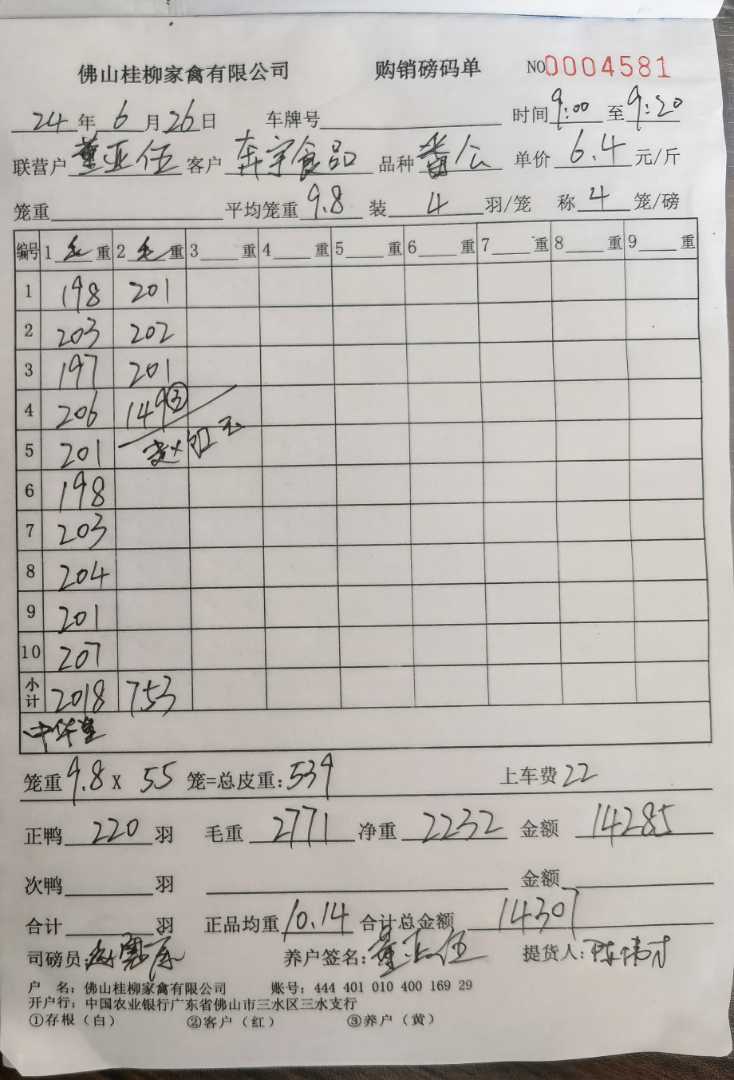 佛山桂柳家禽有限公司 购销磅码单 NO0004581
24年6月26日 车牌号 时间9:00至9:20
联营户董亚伍客户奔宇食品 品种番公 单价6.4元/斤
笼重 平均笼重9.8装4羽/笼 称4笼/磅
编号 1毛重 2毛重 3重 4重 5重 6重 7重 8重 9重
1 198 201
2 203 202
3 197 201
4 206 149③
5 201
6 198
7 203
8 204
9 201
10 207
小计 2018 753
笼重9.8X55笼=总皮重:539 上车费22
正鸭220羽 毛重2771净重2232金额14285
次鸭羽 金额
合计羽 正品均重10.14合计总金额14307
司磅员: 养户签名:董亚伍 提货人:
户 名:佛山桂柳家禽有限公司 账号:444 401 010 400 169 29
开户行:中国农业银行广东省佛山市三水区三水支行
①存根(白) ②客户(红) ③养户(黄)